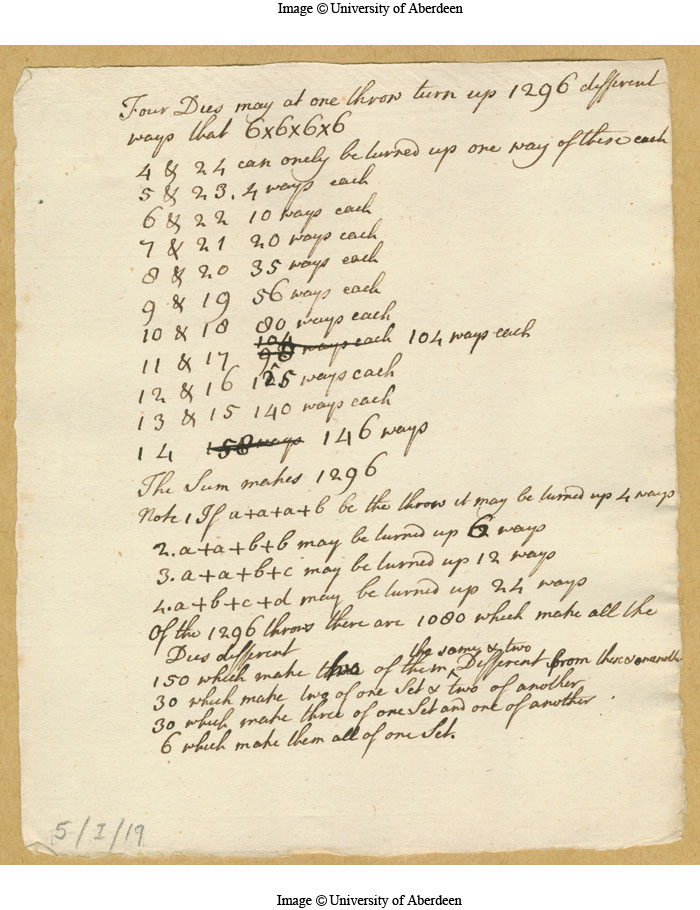 Image © University of Aberdeen
Four Dies may at one throw turn up 1296 different
ways that 6x6x6x6
4 & 24 can onely be turned up one way of these each
5 & 23. 4 ways each
6 & 22 10 ways each
7 & 21 20 ways each
8 & 20 35 ways each
9 & 19 56 ways each
10 & 18 80 ways each
104
11 & 17 98 ways each 104 ways each
12 & 16 125 ways each
13 & 15 140 ways each
14 158 ways 146 ways
The Sum makes 1296
Note 1 If a+a+a+b be the throw it may be turned up 4 ways
2. a+a+b+b may be turned up 6 ways
3. a+a+b+c may be turned up 12 ways
4. a+b+c+d may be turned up 24 ways
Of the 1296 throws there are 1080 which make all the
Dies different
the same & two
150 which make of them Different from these & one another
30 which make two of one Set & two of another
30 which make three of one Set and one of another
6 which make them all of one Set.
5/I/19
Image © University of Aberdeen